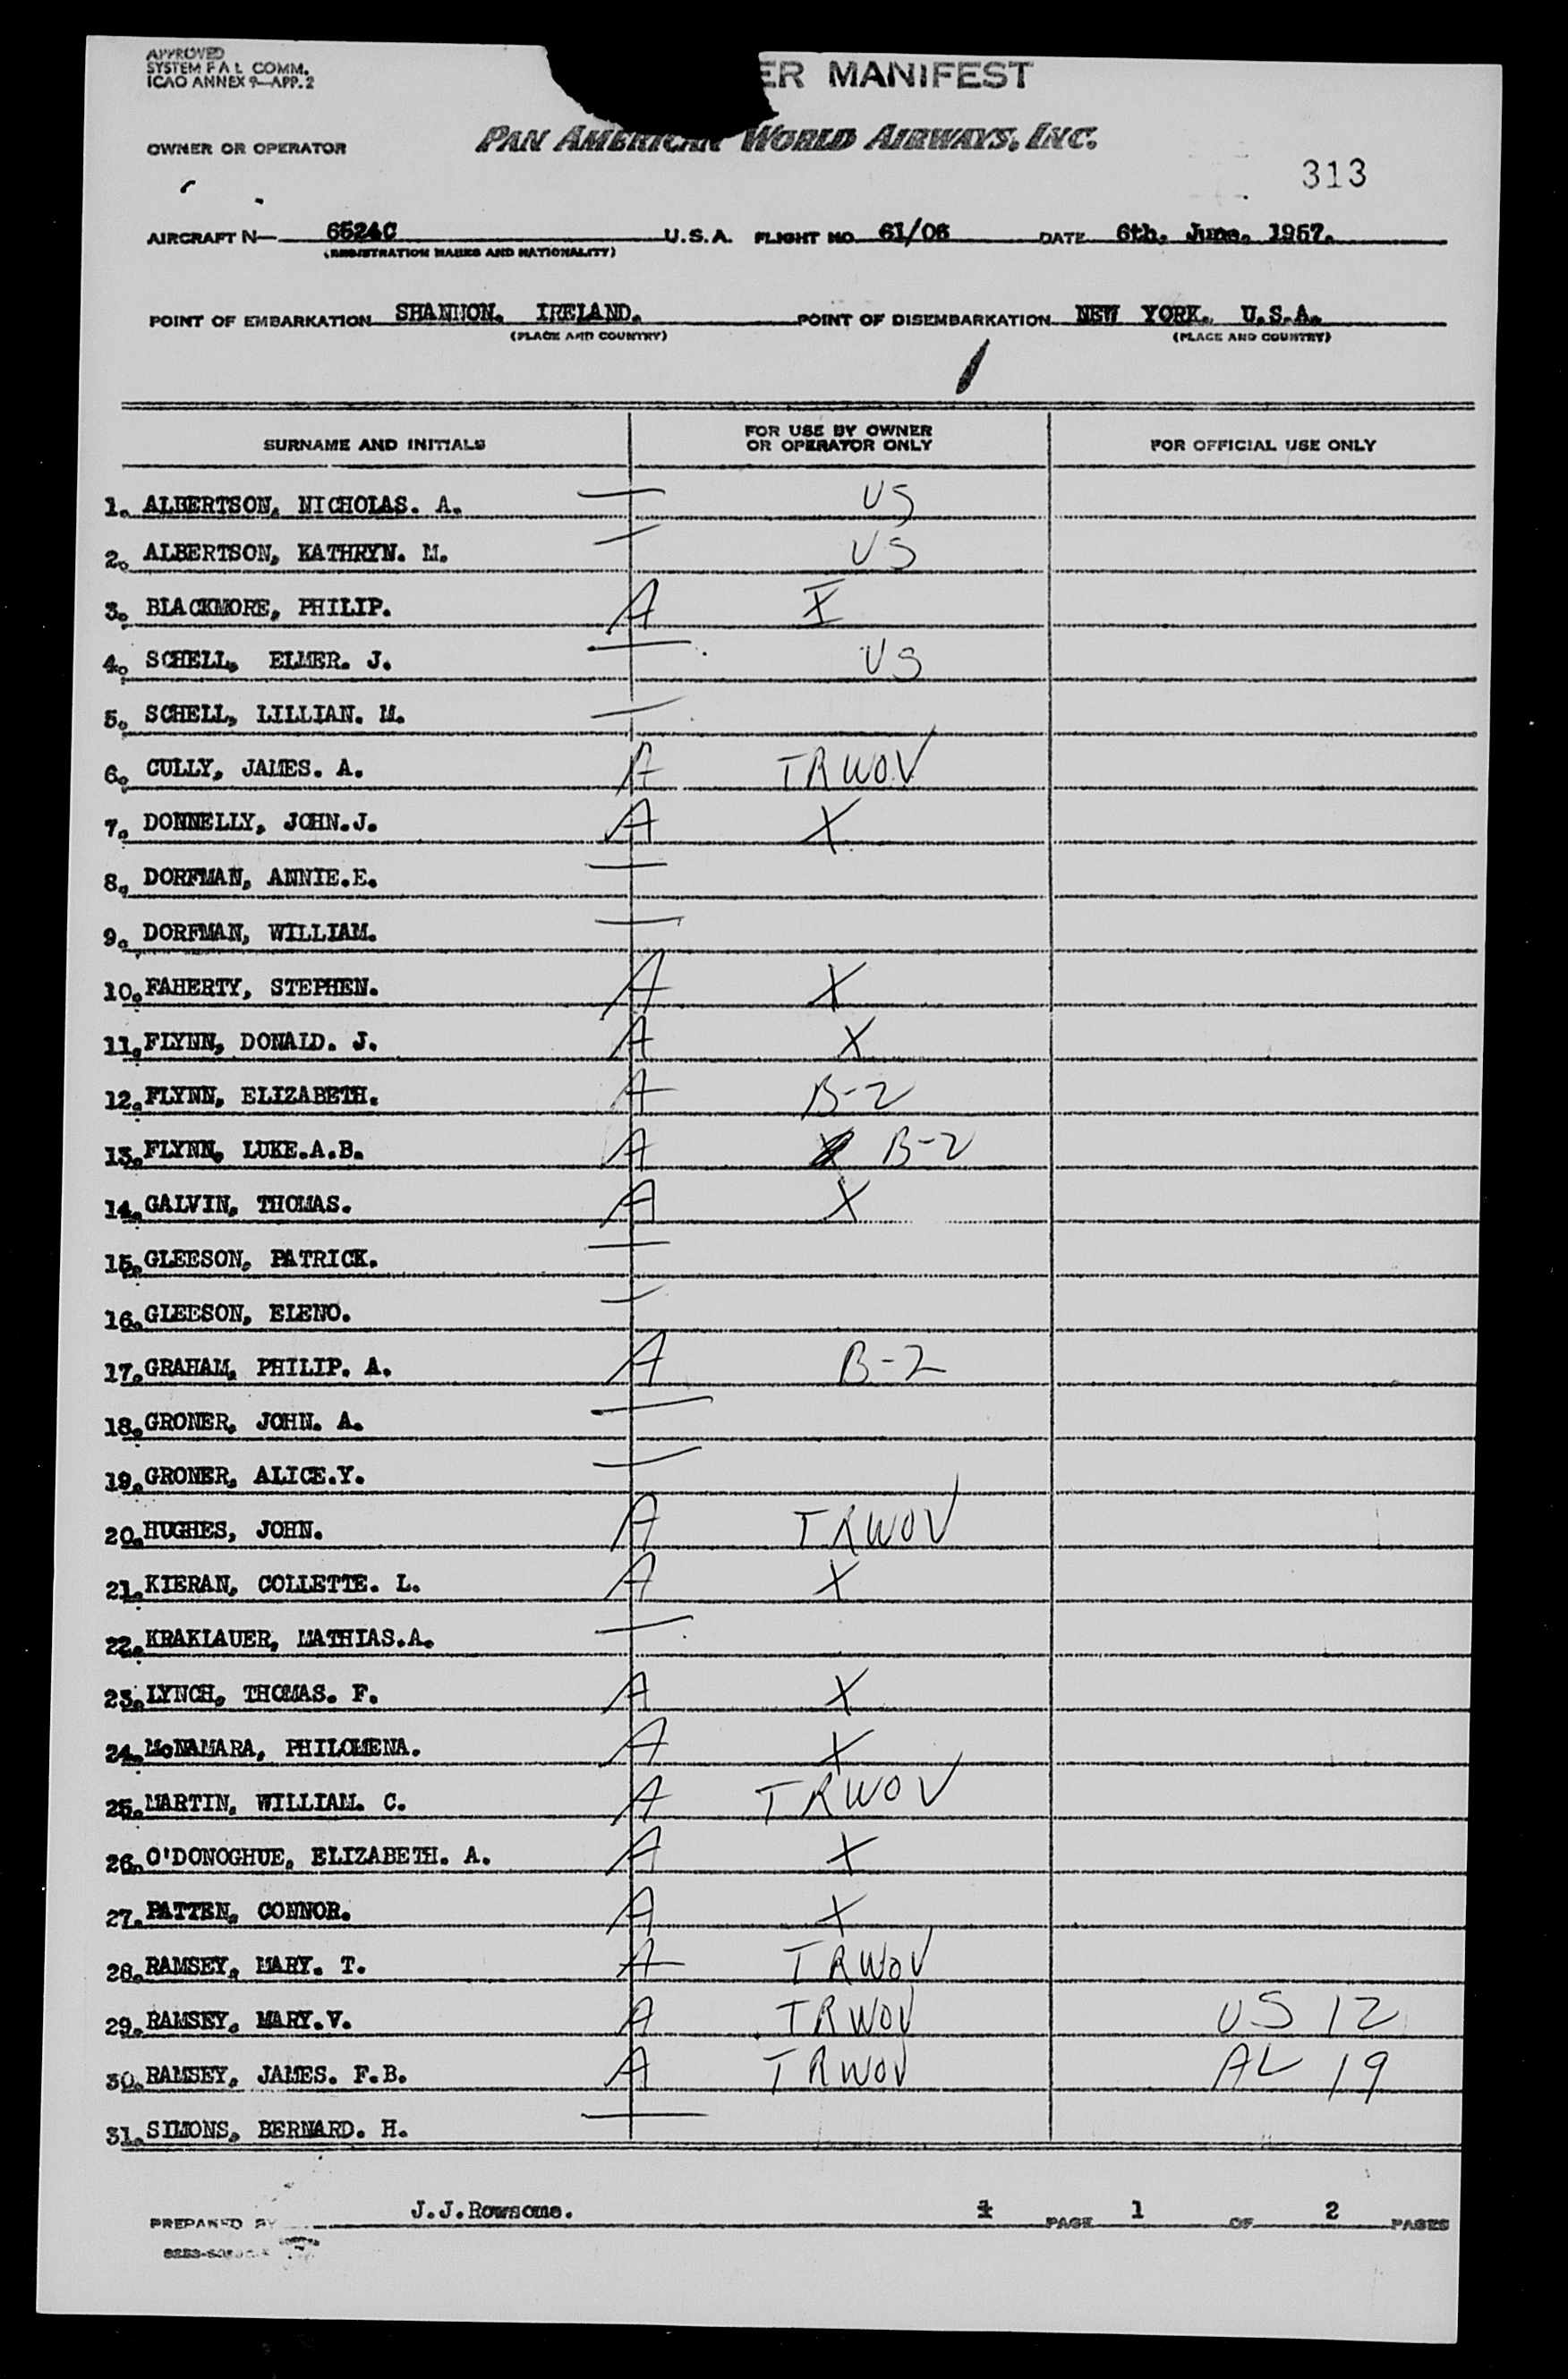 APPROVED
SYSTEM F A L COMM.
ICAO ANNEX 9—APP. 2
ER MANIFEST
OWNER OR OPERATOR PAN AMERICAN WORLD AIRWAYS, INC.
313
AIRCRAFT N— 6524C U.S.A. FLIGHT NO. 61/05 DATE 6th. June. 1957.
(REGISTRATION MARKS AND NATIONALITY)
POINT OF EMBARKATION SHANNON. IRELAND. POINT OF DISEMBARKATION NEW YORK. U.S.A.
(PLACE AND COUNTRY) (PLACE AND COUNTRY)
SURNAME AND INITIALS FOR USE BY OWNER OR OPERATOR ONLY FOR OFFICIAL USE ONLY
1. ALBERTSON, NICHOLAS. A. — US
2. ALBERTSON, KATHRYN. M. — US
3. BLACKMORE, PHILIP. A X
4. SCHELL, ELMER. J. — US
5. SCHELL, LILLIAN. M. —
6. CULLY, JAMES. A. A TRWOV
7. DONNELLY, JOHN.J. A X
8. DORFMAN, ANNIE.E. —
9. DORFMAN, WILLIAM. —
10. FAHERTY, STEPHEN. A X
11. FLYNN, DONALD. J. A X
12. FLYNN, ELIZABETH. A B-2
13. FLYNN, LUKE.A.B. A X B-2
14. GALVIN, THOMAS. A X
15. GLEESON, PATRICK. —
16. GLEESON, ELENO. —
17. GRAHAM, PHILIP. A. A B-2
18. GRONER, JOHN. A. —
19. GRONER, ALICE.Y. —
20. HUGHES, JOHN. A TRWOV
21. KIERAN, COLLETTE. L. A X
22. KRAKLAUER, MATHIAS.A. —
23. LYNCH, THOMAS. F. A X
24. McNAMARA, PHILOMENA. A X
25. MARTIN, WILLIAM. C. A TRWOV
26. O'DONOGHUE, ELIZABETH. A. A X
27. PATTEN, CONNOR. A X
28. RAMSEY, MARY. T. A TRWOV
29. RAMSEY, MARY.V. A TRWOV US 12
30. RAMSEY, JAMES. F.B. A TRWOV AL 19
31. SIMONS, BERNARD. H. —
PREPARED BY J.J.Rowsome. PAGE 1 OF 2 PAGES